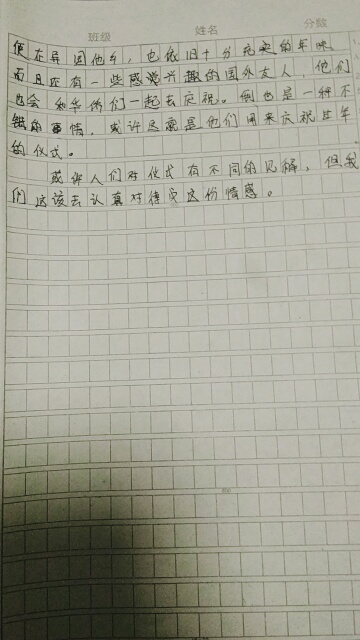 班级 姓名 分数
使在异国他乡，也依旧十分充实的年味
而且还有一些感觉兴趣的国外友人，他们
也会和华侨们一起去庆祝。倒也是一种不
错的事情，或许这就是他们用来庆祝过年
的仪式。
或许人们对仪式有不同的见解，但我
们应该去认真对待这份情感。